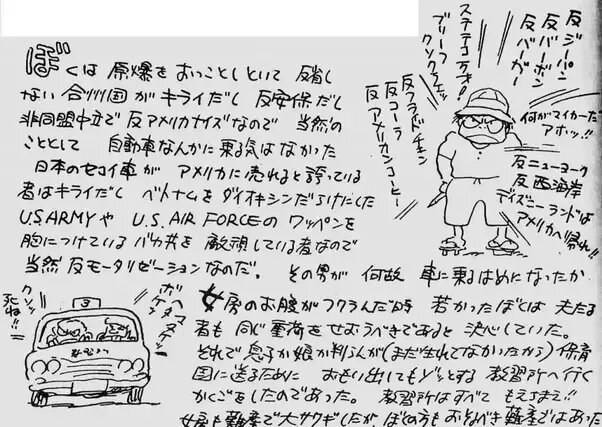 ぼくは 原爆をおっことしといて 反省し
ない合州国がキライだし 反安保だし
非同盟中立で反アメリカナイズなので 当然の
こととして 自動車なんかに乗る気はなかった
日本のセコイ車が アメリカに売れると誇っている
者はキライだし ベトナムをダイオキシンだらけにした
U.S.ARMYや U.S.AIR FORCEの ワッペンを
胸につけているバカ共を 敵視している者なので
当然 反モータリゼーションなのだ。 その男が 何故 車に乗るはめになったか
反ジーパン
反バーボン
反バーガー
ステテコ万才!
ブリーフ
クソクラエッ
反フライドチキン
反コーラ
反アメリカンコーヒー
何がマイカーだ
アホッ!!
反ニューヨーク
反西海岸
デイズニーランドは
アメリカへ帰れ!!
女房のお腹がフクラんだ時 若かったぼくは 夫たる
者も 同じ重荷をせおうべきであると 決心していた。
それで息子か娘か判らんが(まだ生れてなかったから)保育
園に送るために おもい出してもゾッとする 教習所へ行く
かくごをしたのであった。 教習所はすべて もえちまえ!!
女房も難産で大サワギしたが、ぼくの方もおそるべき難産ではあった
クソッ
死ね!!